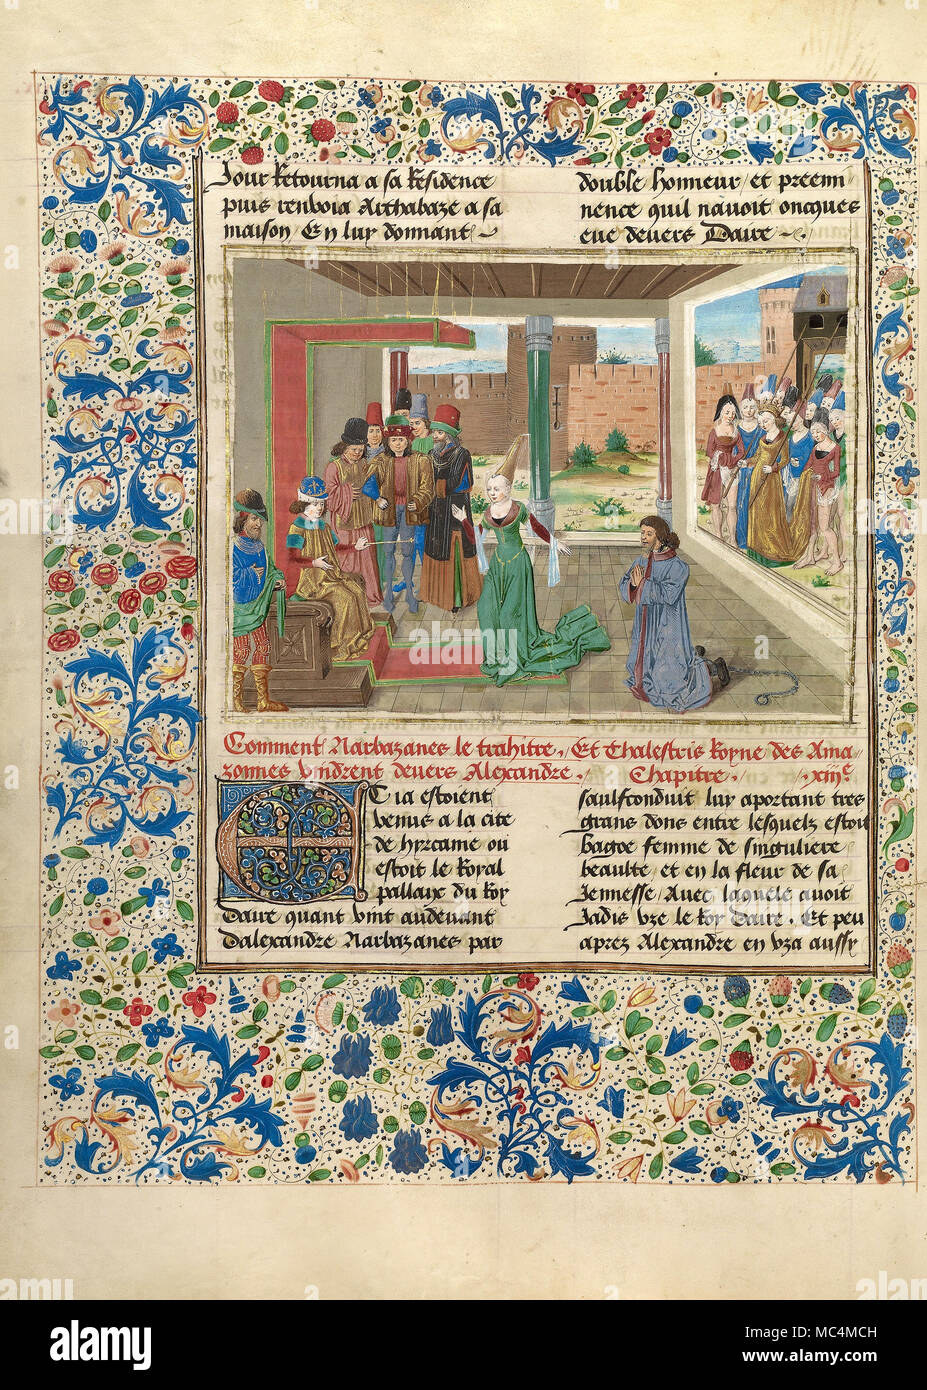 Jour Retourna a sa Residence
puis renuoia Arthabaze a sa
maison / En luy donnant
double honneur / et preemi
nence quil nauoit oncques
eue deuers Daire
Comment Narbazanes le trahitre, Et Thalestris Royne des Ama
zonnes vindrent deuers Alexandre. Chapitre. xiiie
Eia estoient
venus a la cite
de hyrcame ou
estoit le Royal
pallaix du Roy
Daire quant vint audeuant
Dalexandre Narbazanes par
saulfconduit luy aportant tres
grans dons entre lesquelz estoit
Bagoe femme de singuliere
beaulte / et en la fleur de sa
Jennesse / Auec laquele auoit
Jadis vze le Roy Daire. Et peu
aprez Alexandre en vza aussy
alamy
a
a
alamy
Image ID: MC4MCH
www.alamy.com